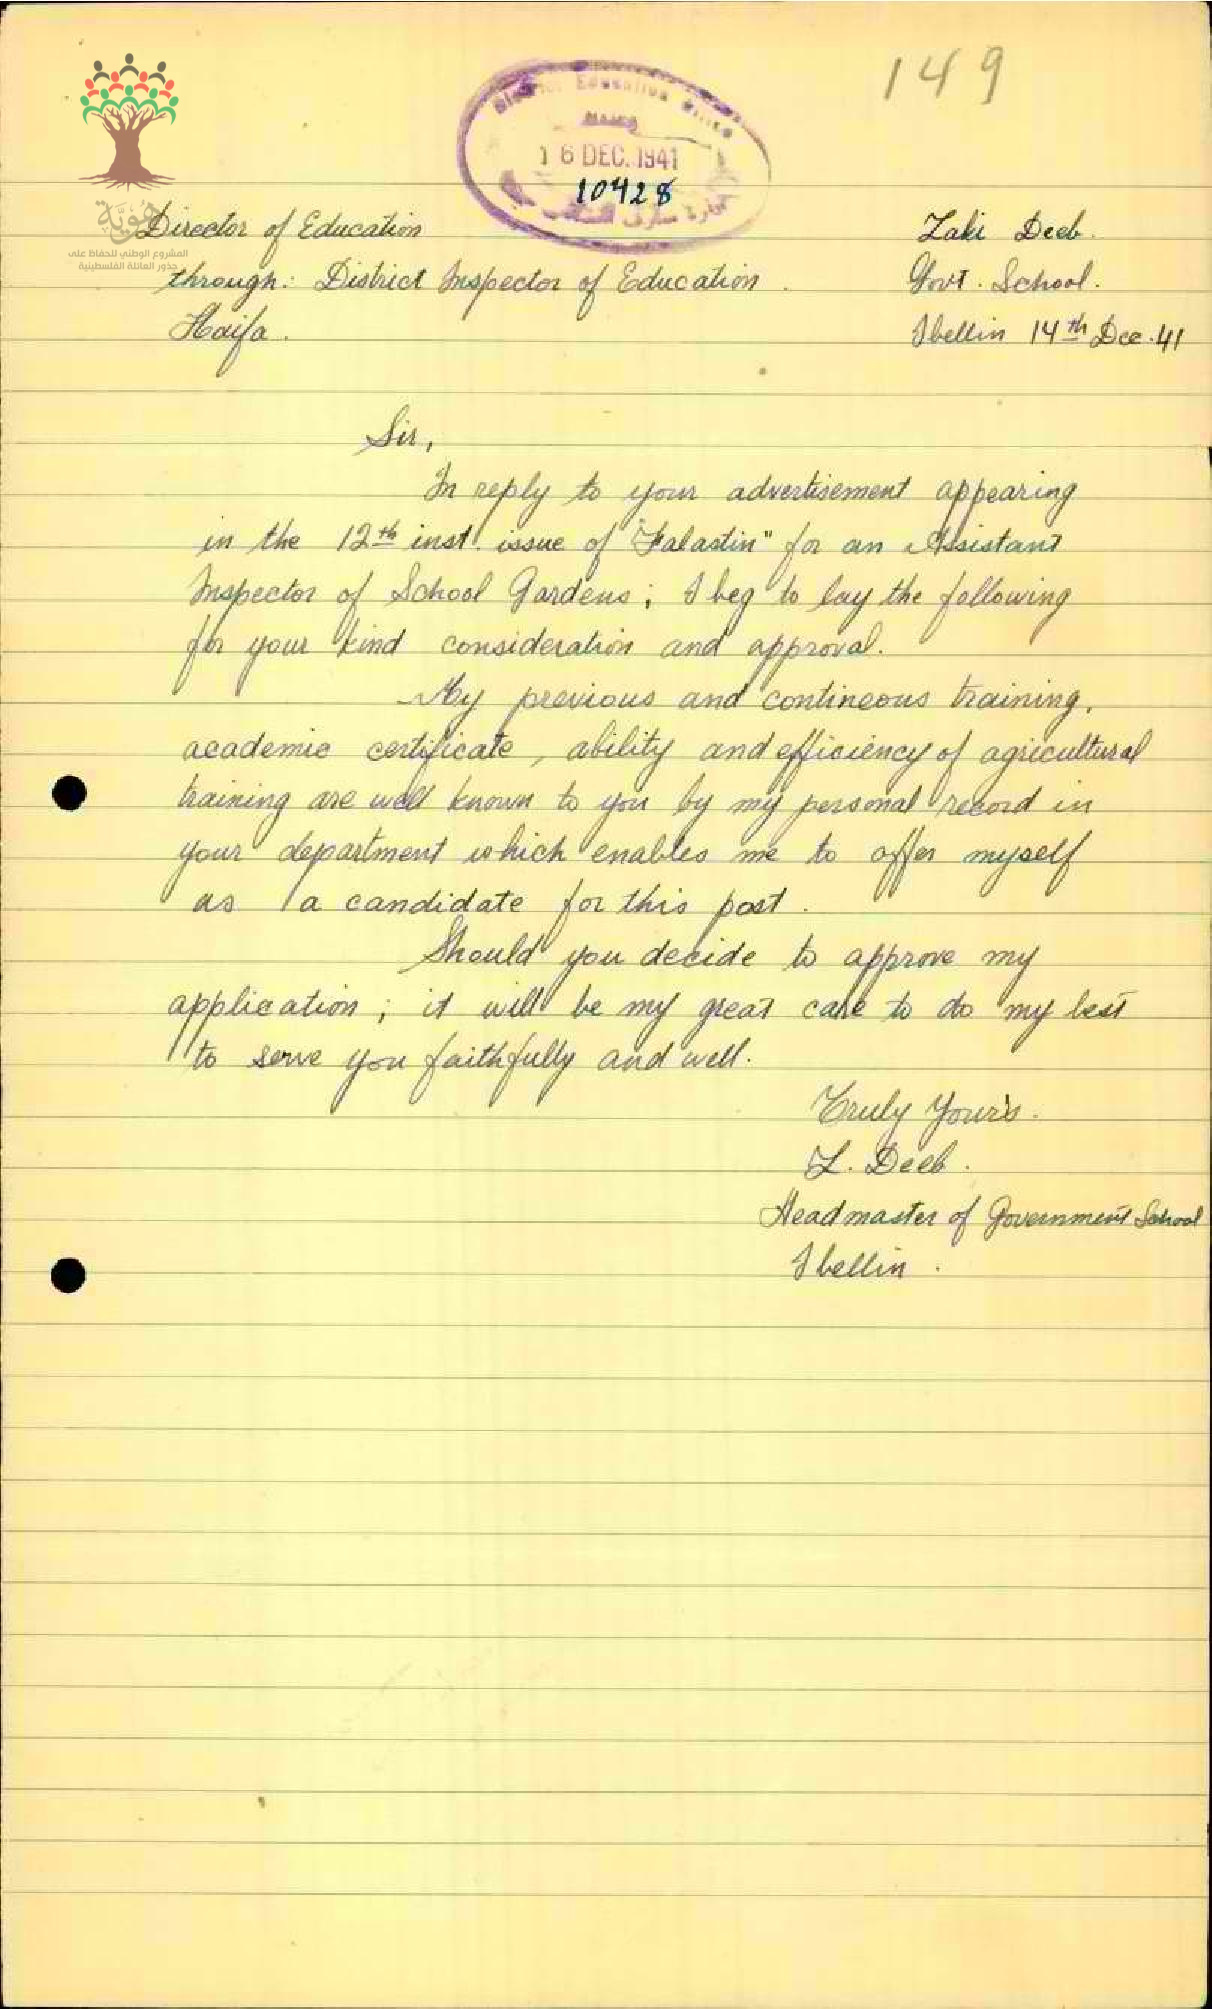 149
District Education Office
Haifa
16 DEC. 1941
10428
هوية
المشروع الوطني للحفاظ على
جذور العائلة الفلسطينية
Director of Education
through: District Inspector of Education.
Haifa.
Zaki Deeb.
Govt. School.
Ibellin 14th Dec. 41
Sir,
In reply to your advertisement appearing
in the 12th inst. issue of "Falastin" for an Assistant
Inspector of School Gardens; I beg to lay the following
for your kind consideration and approval.
My previous and contineous training,
academic certificate, ability and efficiency of agricultural
training are well known to you by my personal record in
your department which enables me to offer myself
as a candidate for this post.
Should you decide to approve my
application; it will be my great care to do my best
to serve you faithfully and well.
Truly Your's.
Z. Deeb.
Headmaster of Government School
Ibellin.